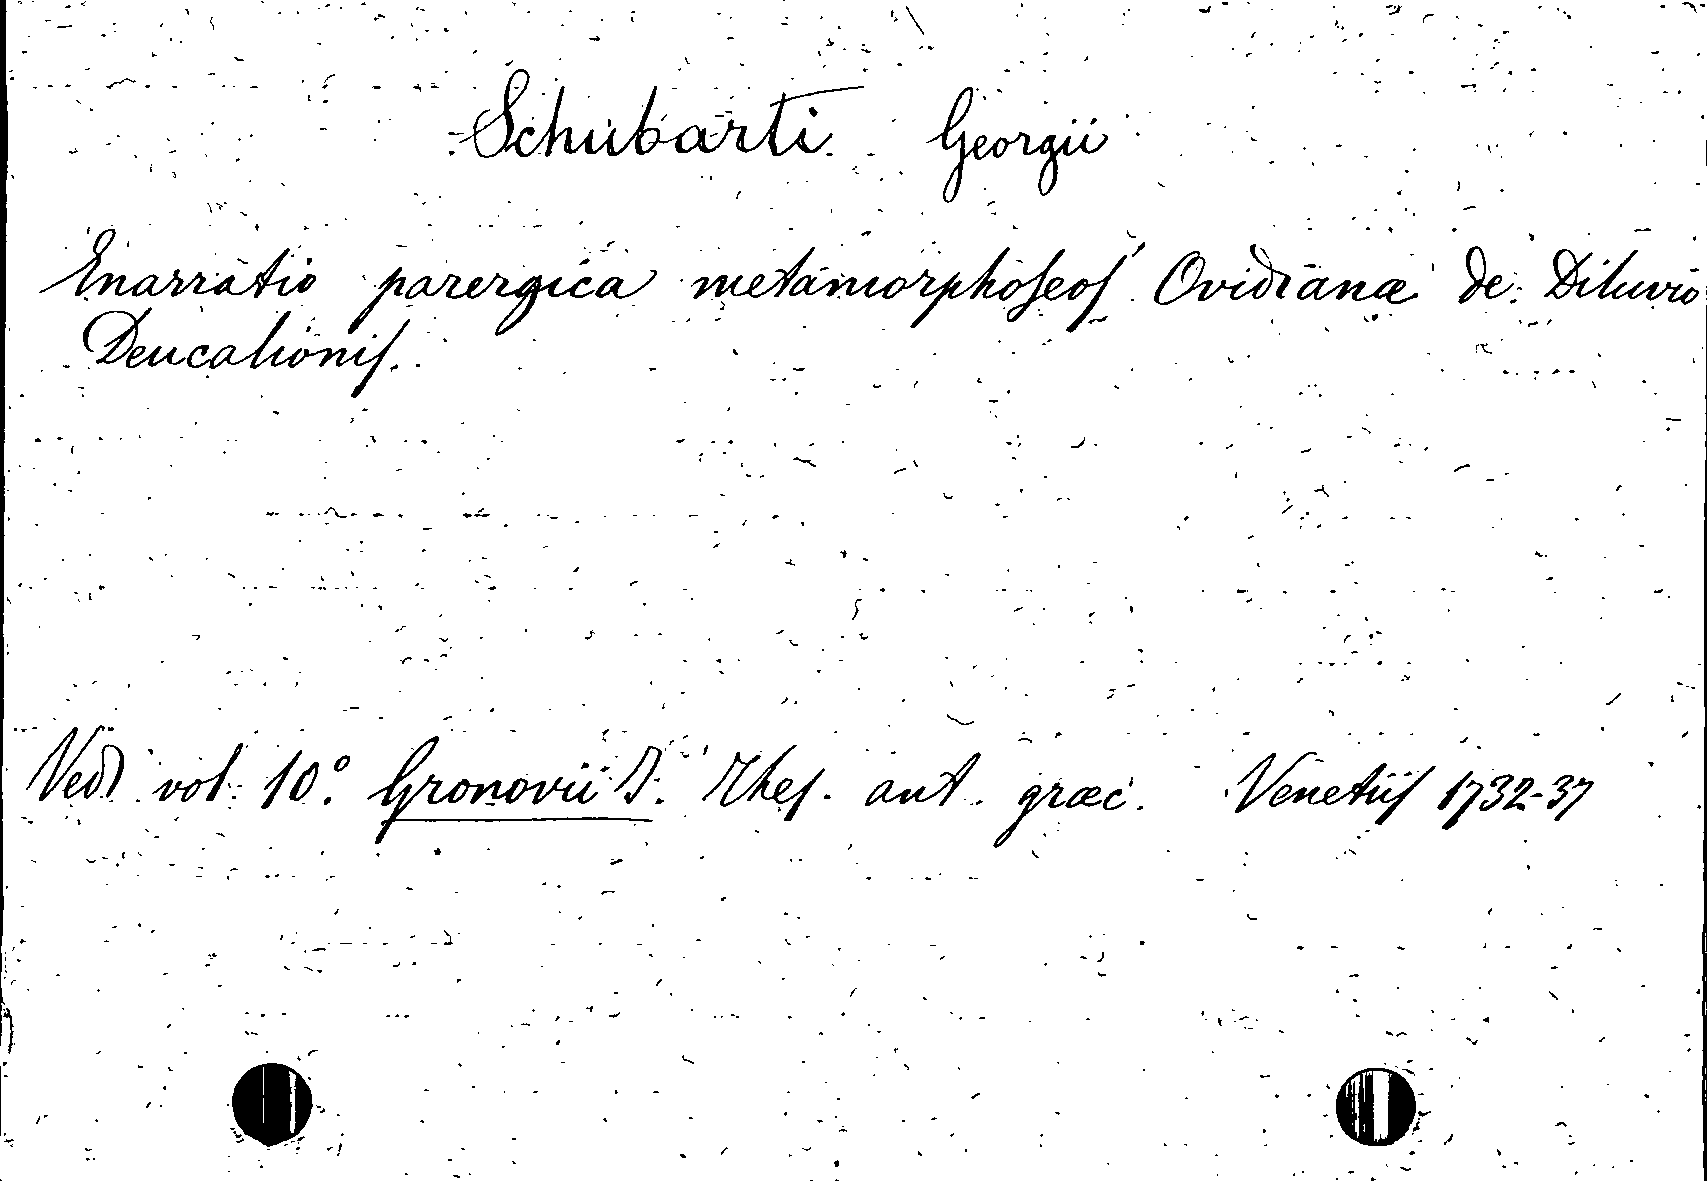 Schubarti Georgii
Enarratio parergica metamorphoseos Ovidianæ de Diluvio
Deucalionis.
Vedi vol. 10.° Gronovii I. Thes. ant. græc. Venetiis 1732-37